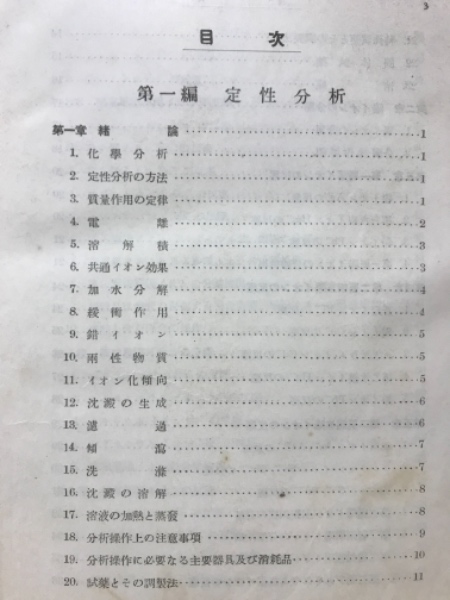 3
目次
第一編 定性分析
第一章 緒論 1
1. 化學分析 1
2. 定性分析の方法 1
3. 質量作用の定律 1
4. 電離 2
5. 溶解積 3
6. 共通イオン効果 3
7. 加水分解 4
8. 緩衝作用 4
9. 錯イオン 5
10. 兩性物質 5
11. イオン化傾向 5
12. 沈澱の生成 6
13. 濾過 6
14. 傾瀉 7
15. 洗滌 7
16. 沈澱の溶解 8
17. 溶液の加熱と蒸發 8
18. 分析操作上の注意事項 9
19. 分析操作に必要なる主要器具及び消耗品 10
20. 試藥とその調製法 11